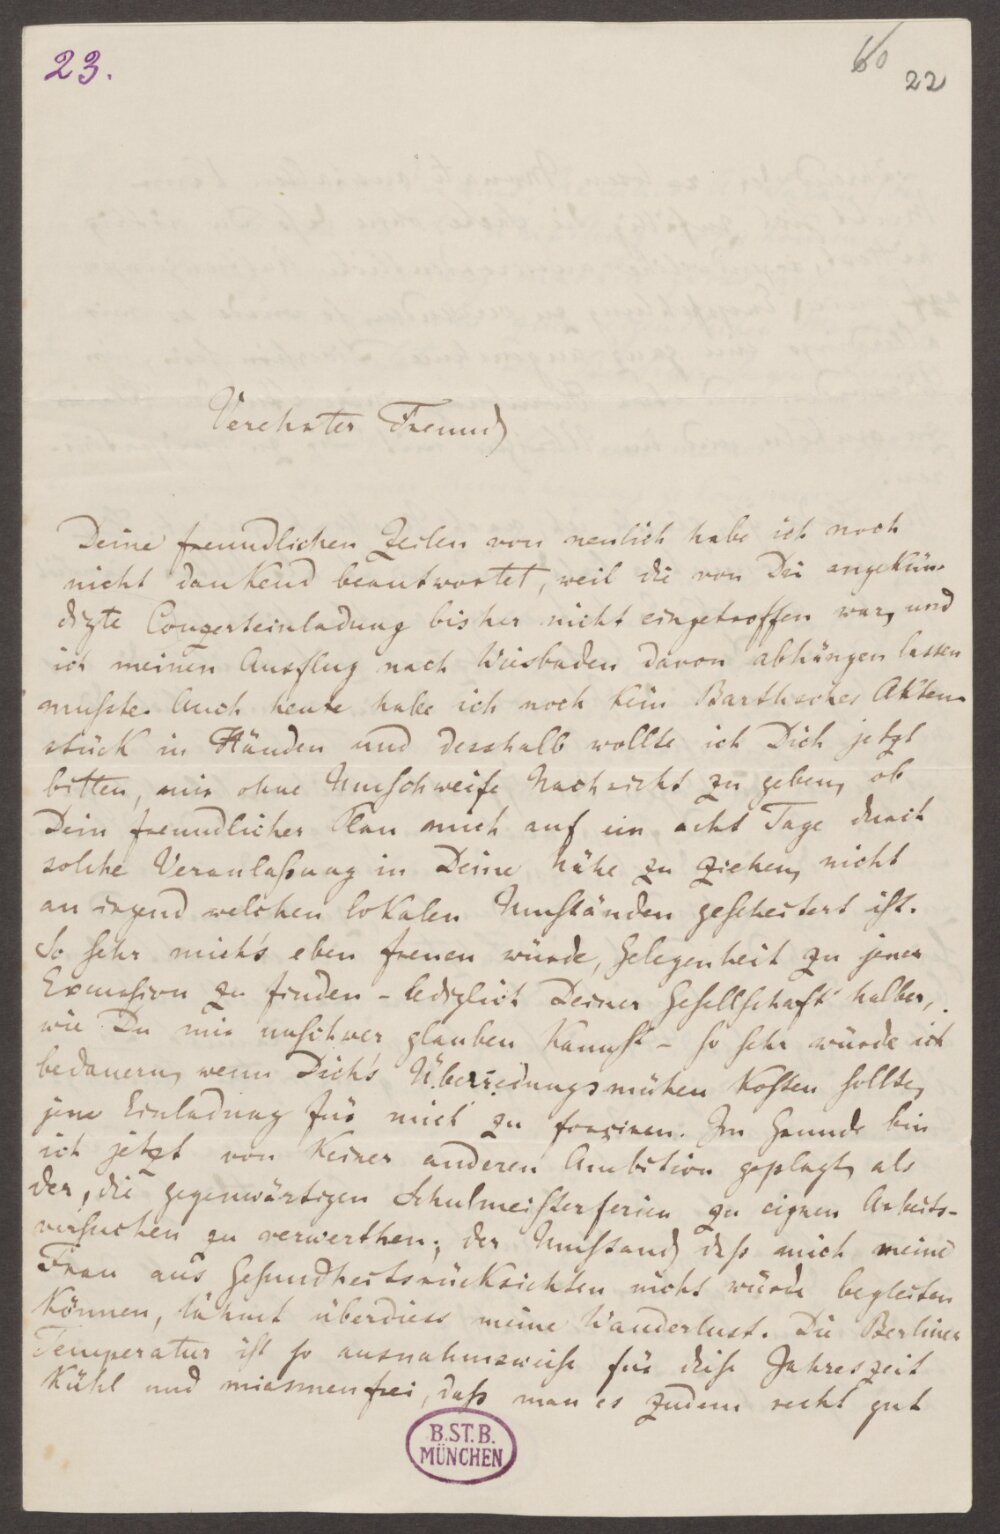 23.
60
22
Verehrter Freund,
Deine freundlichen Zeilen von neulich habe ich noch
nicht dankend beantwortet, weil die von Dir angekün-
digte Conzerteinladung bisher nicht eingetroffen war, und
ich meinen Ausflug nach Wiesbaden davon abhängen lassen
mußte. Auch heute habe ich noch kein Barthsches Akten-
stück in Händen und desshalb wollte ich Dich jetzt
bitten, mir ohne Umschweife Nachricht zu geben, ob
Dein freundlicher Plan mich auf ein acht Tage durch
solche Veranlaßung in Deine Nähe zu ziehen, nicht
an irgend welchen lokalen Umständen gescheitert ist.
So sehr mich's eben freuen würde, Gelegenheit zu jener
Excursion zu finden – lediglich Deiner Gesellschaft halber,
wie Du mir unschwer glauben kannst – so sehr würde ich
bedauern, wenn Dich's Überredungsmühen kosten sollte,
jene Einladung für mich zu forziren. Im Grunde bin
ich jetzt von keiner anderen Ambition geplagt, als
der, die gegenwärtigen Schulmeisterferien zu eignen Arbeits-
versuchen zu verwerthen; der Umstand, daß mich meine
Frau aus Gesundheitsrücksichten nicht würde begleiten
können, lähmt überdiess meine Wanderlust. Die Berliner
Temperatur ist so ausnahmsweise für diese Jahreszeit
kühl und miasmenfrei, daß man es zudem recht gut
B.ST.B.
MÜNCHEN